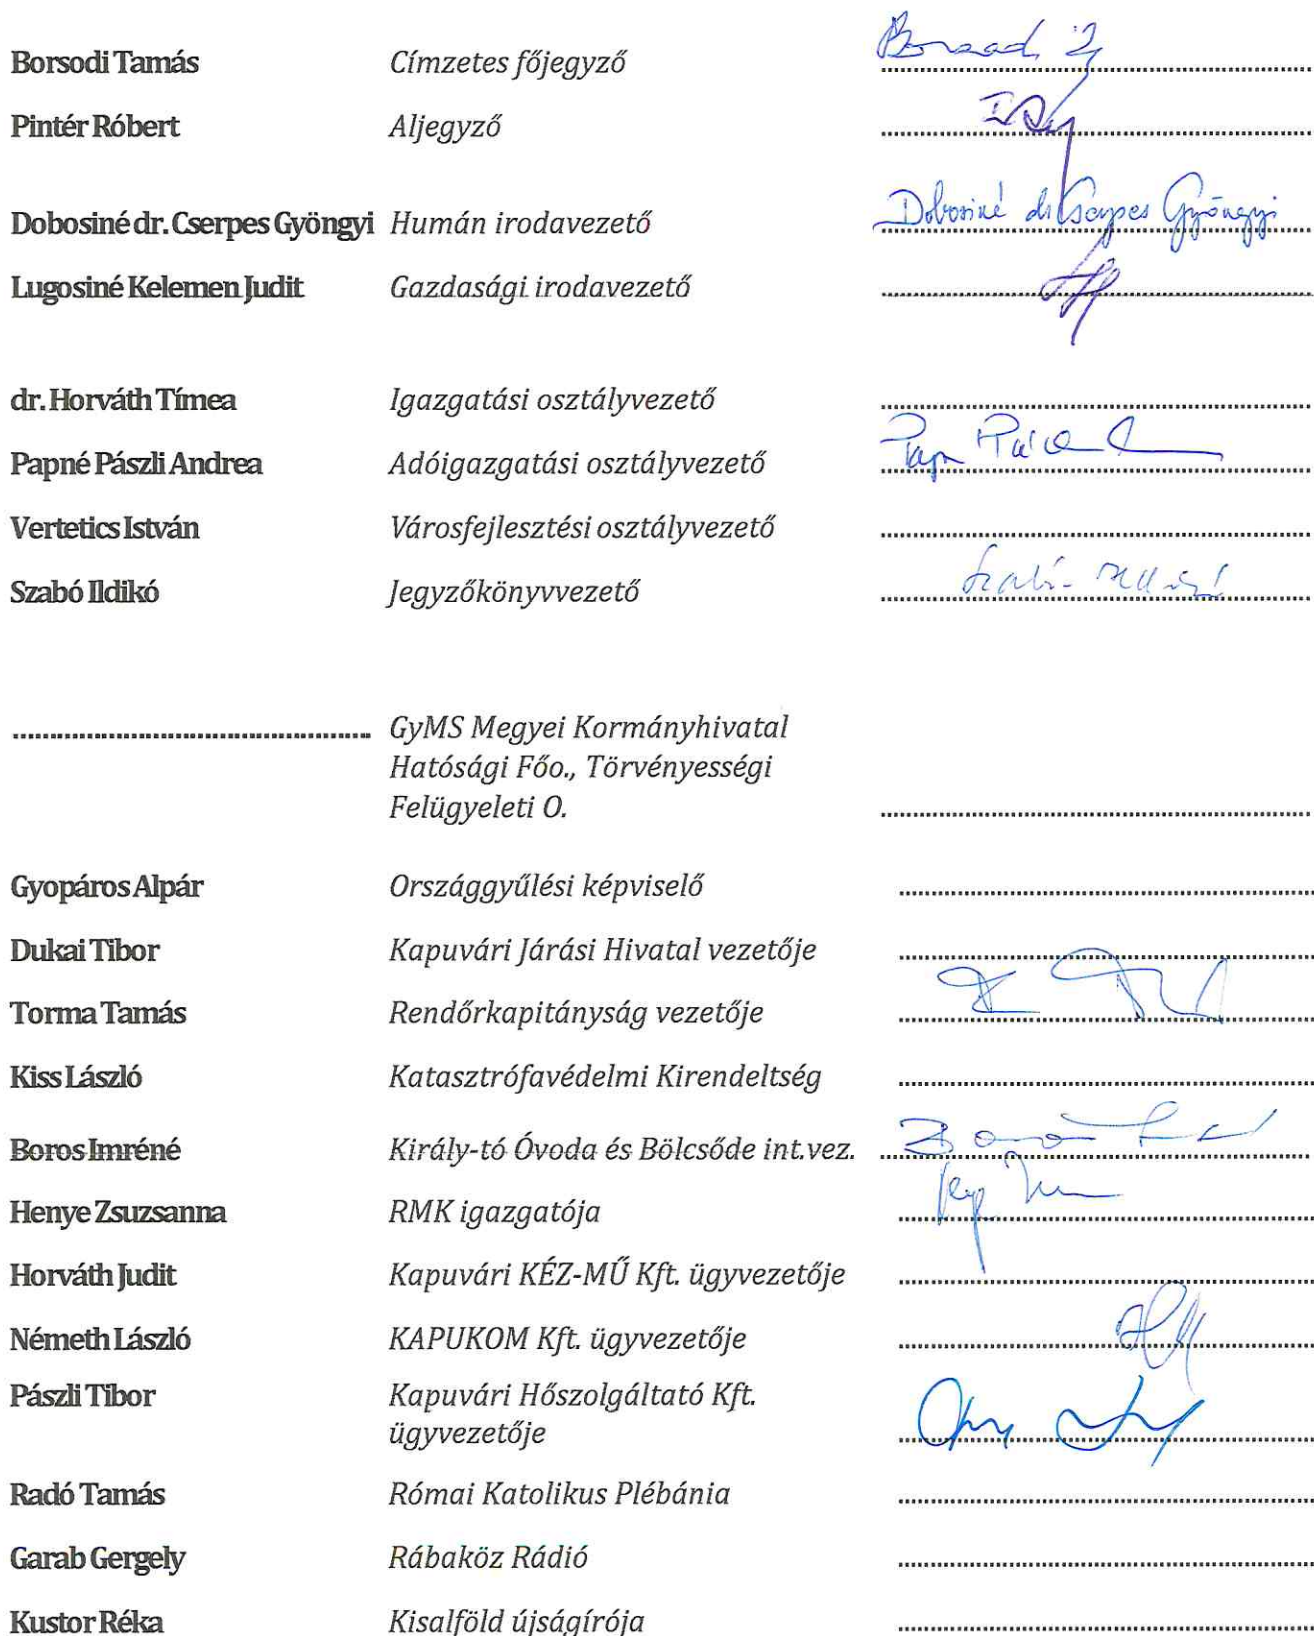 Borsodi Tamás Címzetes főjegyző
Pintér Róbert Aljegyző
Dobosiné dr. Cserpes Gyöngyi Humán irodavezető Dobosiné dr Cserpes Gyöngyi
Lugosiné Kelemen Judit Gazdasági irodavezető
dr. Horváth Tímea Igazgatási osztályvezető
Papné Pászli Andrea Adóigazgatási osztályvezető
Vertetics István Városfejlesztési osztályvezető
Szabó Ildikó Jegyzőkönyvvezető
GyMS Megyei Kormányhivatal
Hatósági Főo., Törvényességi
Felügyeleti O.
Gyopáros Alpár Országgyűlési képviselő
Dukai Tibor Kapuvári Járási Hivatal vezetője
Torma Tamás Rendőrkapitányság vezetője
Kiss László Katasztrófavédelmi Kirendeltség
Boros Imréné Király-tó Óvoda és Bölcsőde int.vez.
Henye Zsuzsanna RMK igazgatója
Horváth Judit Kapuvári KÉZ-MŰ Kft. ügyvezetője
Németh László KAPUKOM Kft. ügyvezetője
Pászli Tibor Kapuvári Hőszolgáltató Kft.
ügyvezetője
Radó Tamás Római Katolikus Plébánia
Garab Gergely Rábaköz Rádió
Kustor Réka Kisalföld újságírója